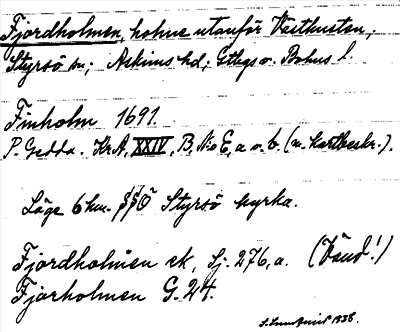 Fjordholmen, holme utanför Västkusten,
Styrsö sn; Askims hd; Gtbgs o. Bohus l.
Finholm 1691.
P. Gedda. KrA, XXIV, B, No E, a o. b. (m. kartbeskr.).
Läge 6 km. SSO Styrsö kyrka.
Fjordholmen ek, Sj. 276, a. (Vänd!)
Fjorholmen G. 24.
1938.